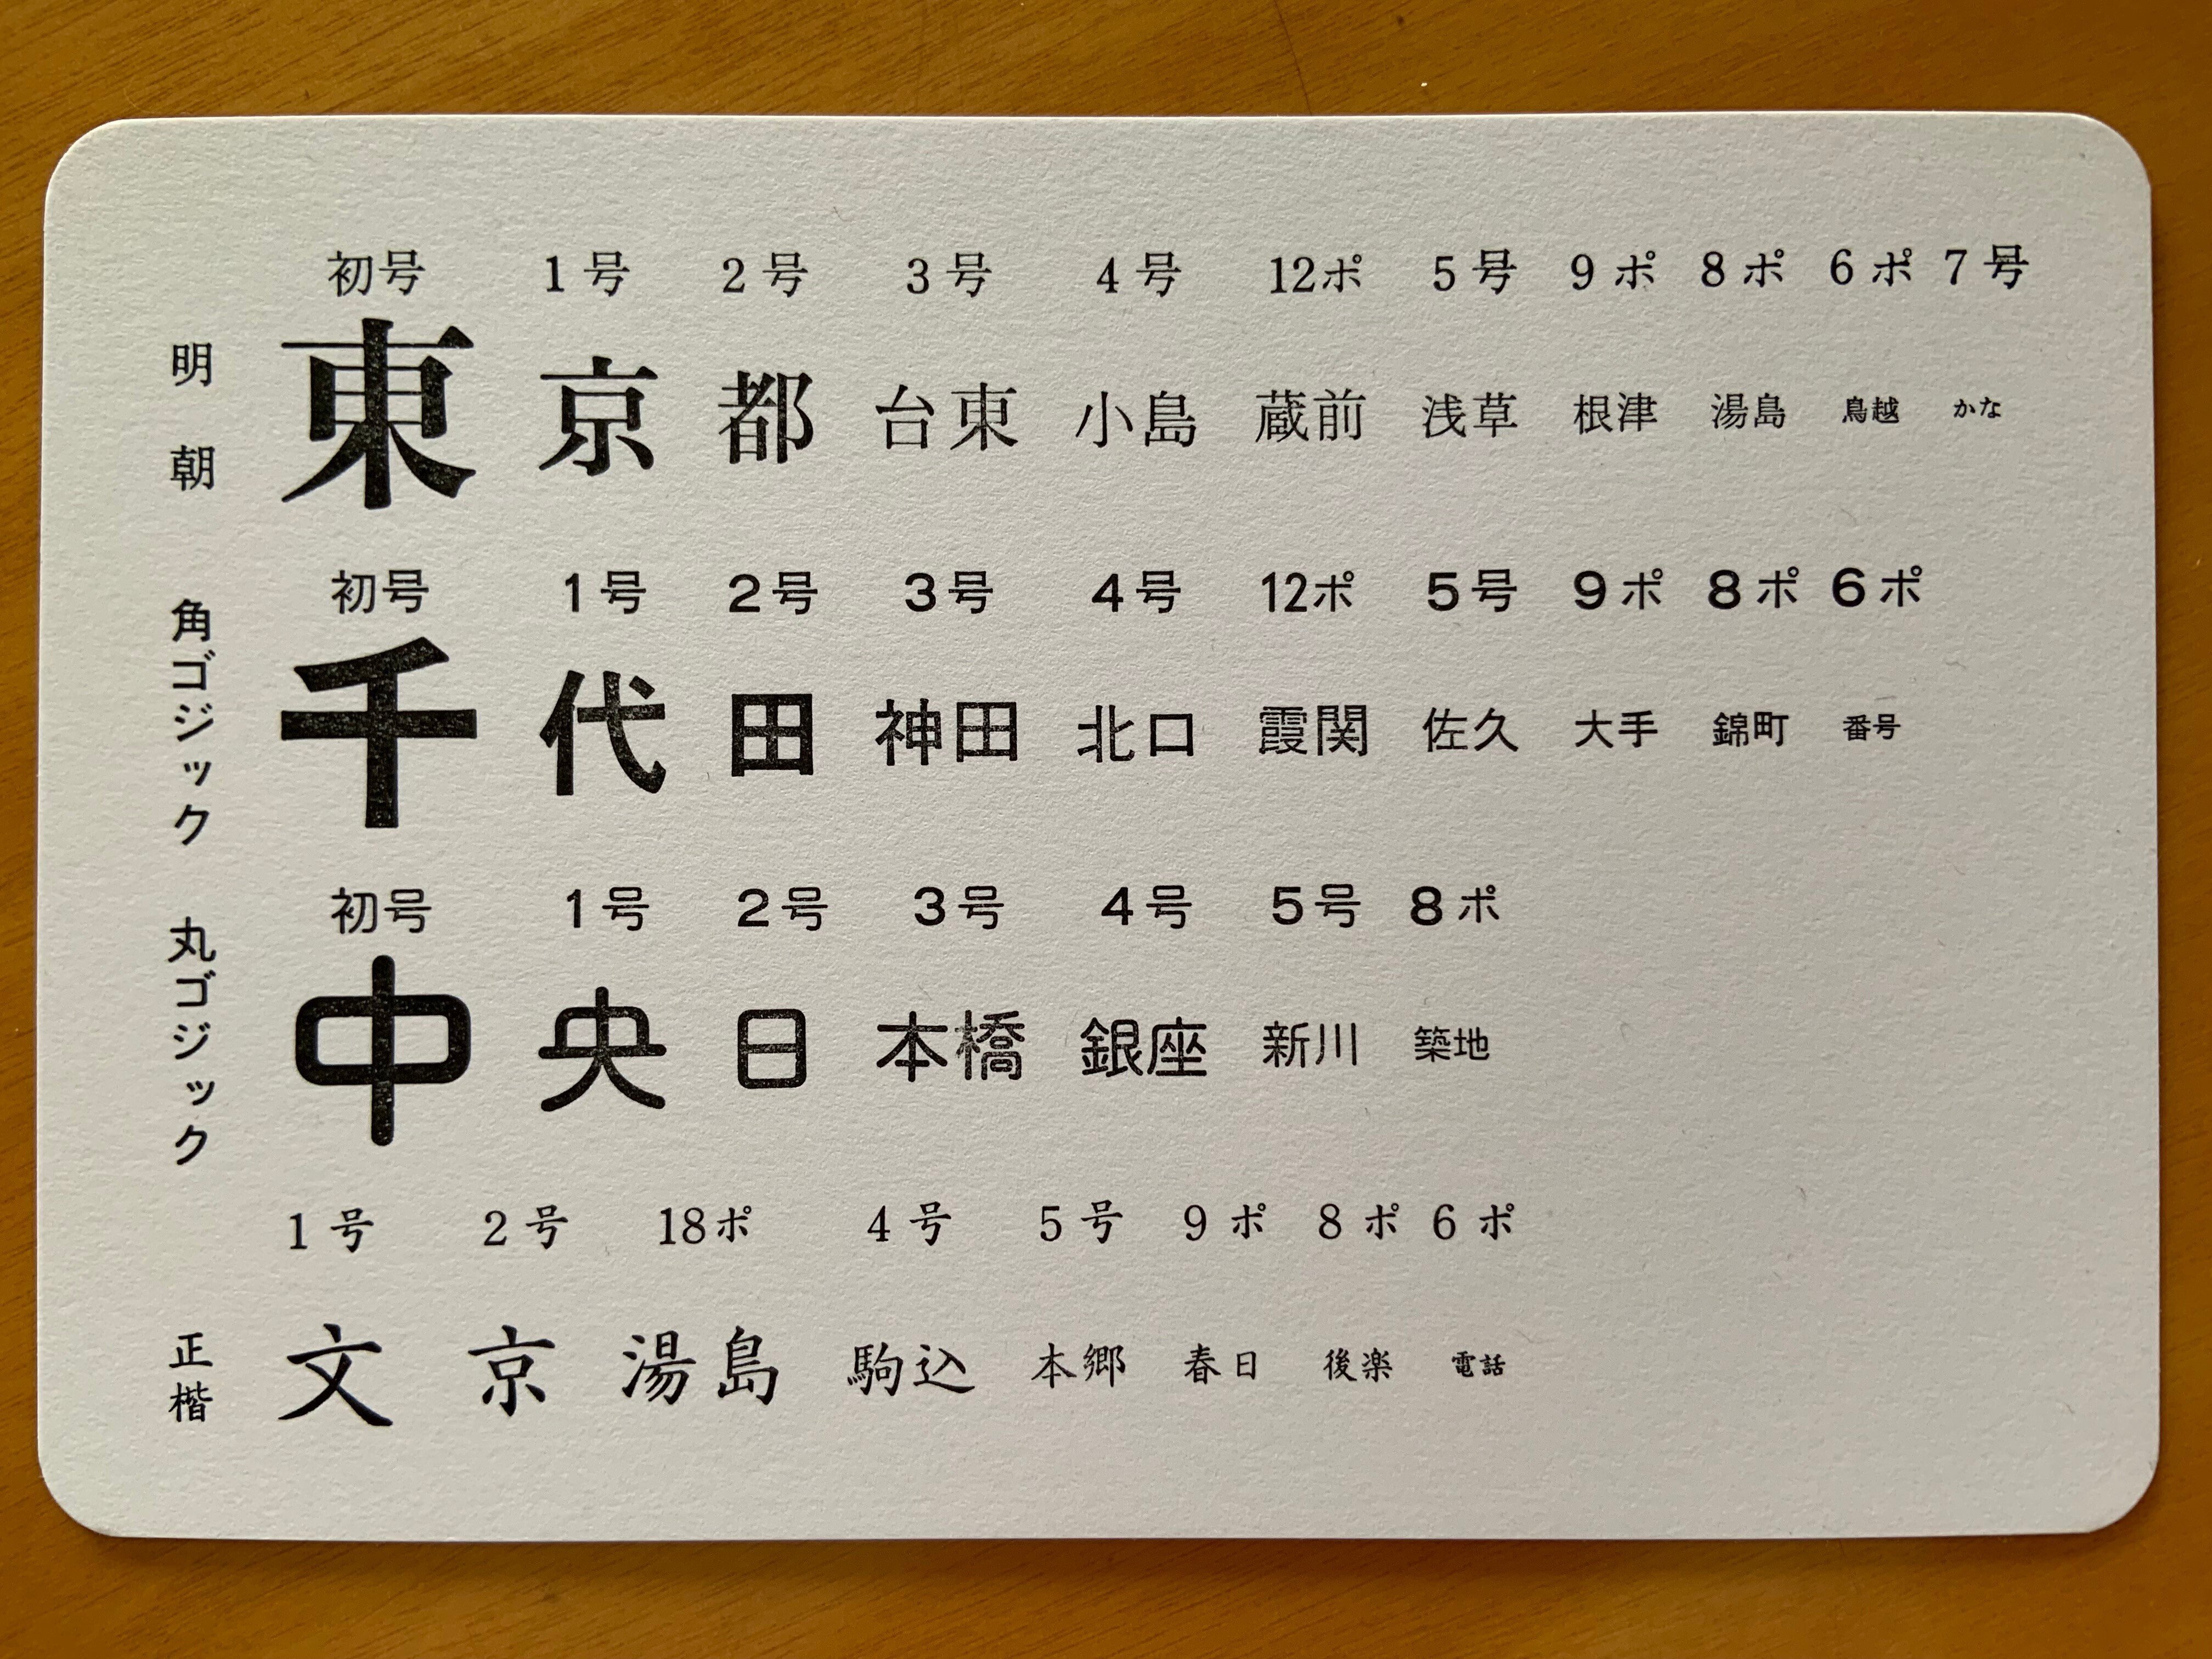 初号 1号 2号 3号 4号 12ポ 5号 9ポ 8ポ 6ポ 7号
明朝
東 京 都 台東 小島 蔵前 浅草 根津 湯島 鳥越 かな
初号 1号 2号 3号 4号 12ポ 5号 9ポ 8ポ 6ポ
角ゴジック
千 代 田 神田 北口 霞関 佐久 大手 錦町 番号
初号 1号 2号 3号 4号 5号 8ポ
丸ゴジック
中 央 日 本橋 銀座 新川 築地
1号 2号 18ポ 4号 5号 9ポ 8ポ 6ポ
正楷
文 京 湯島 駒込 本郷 春日 後楽 電話